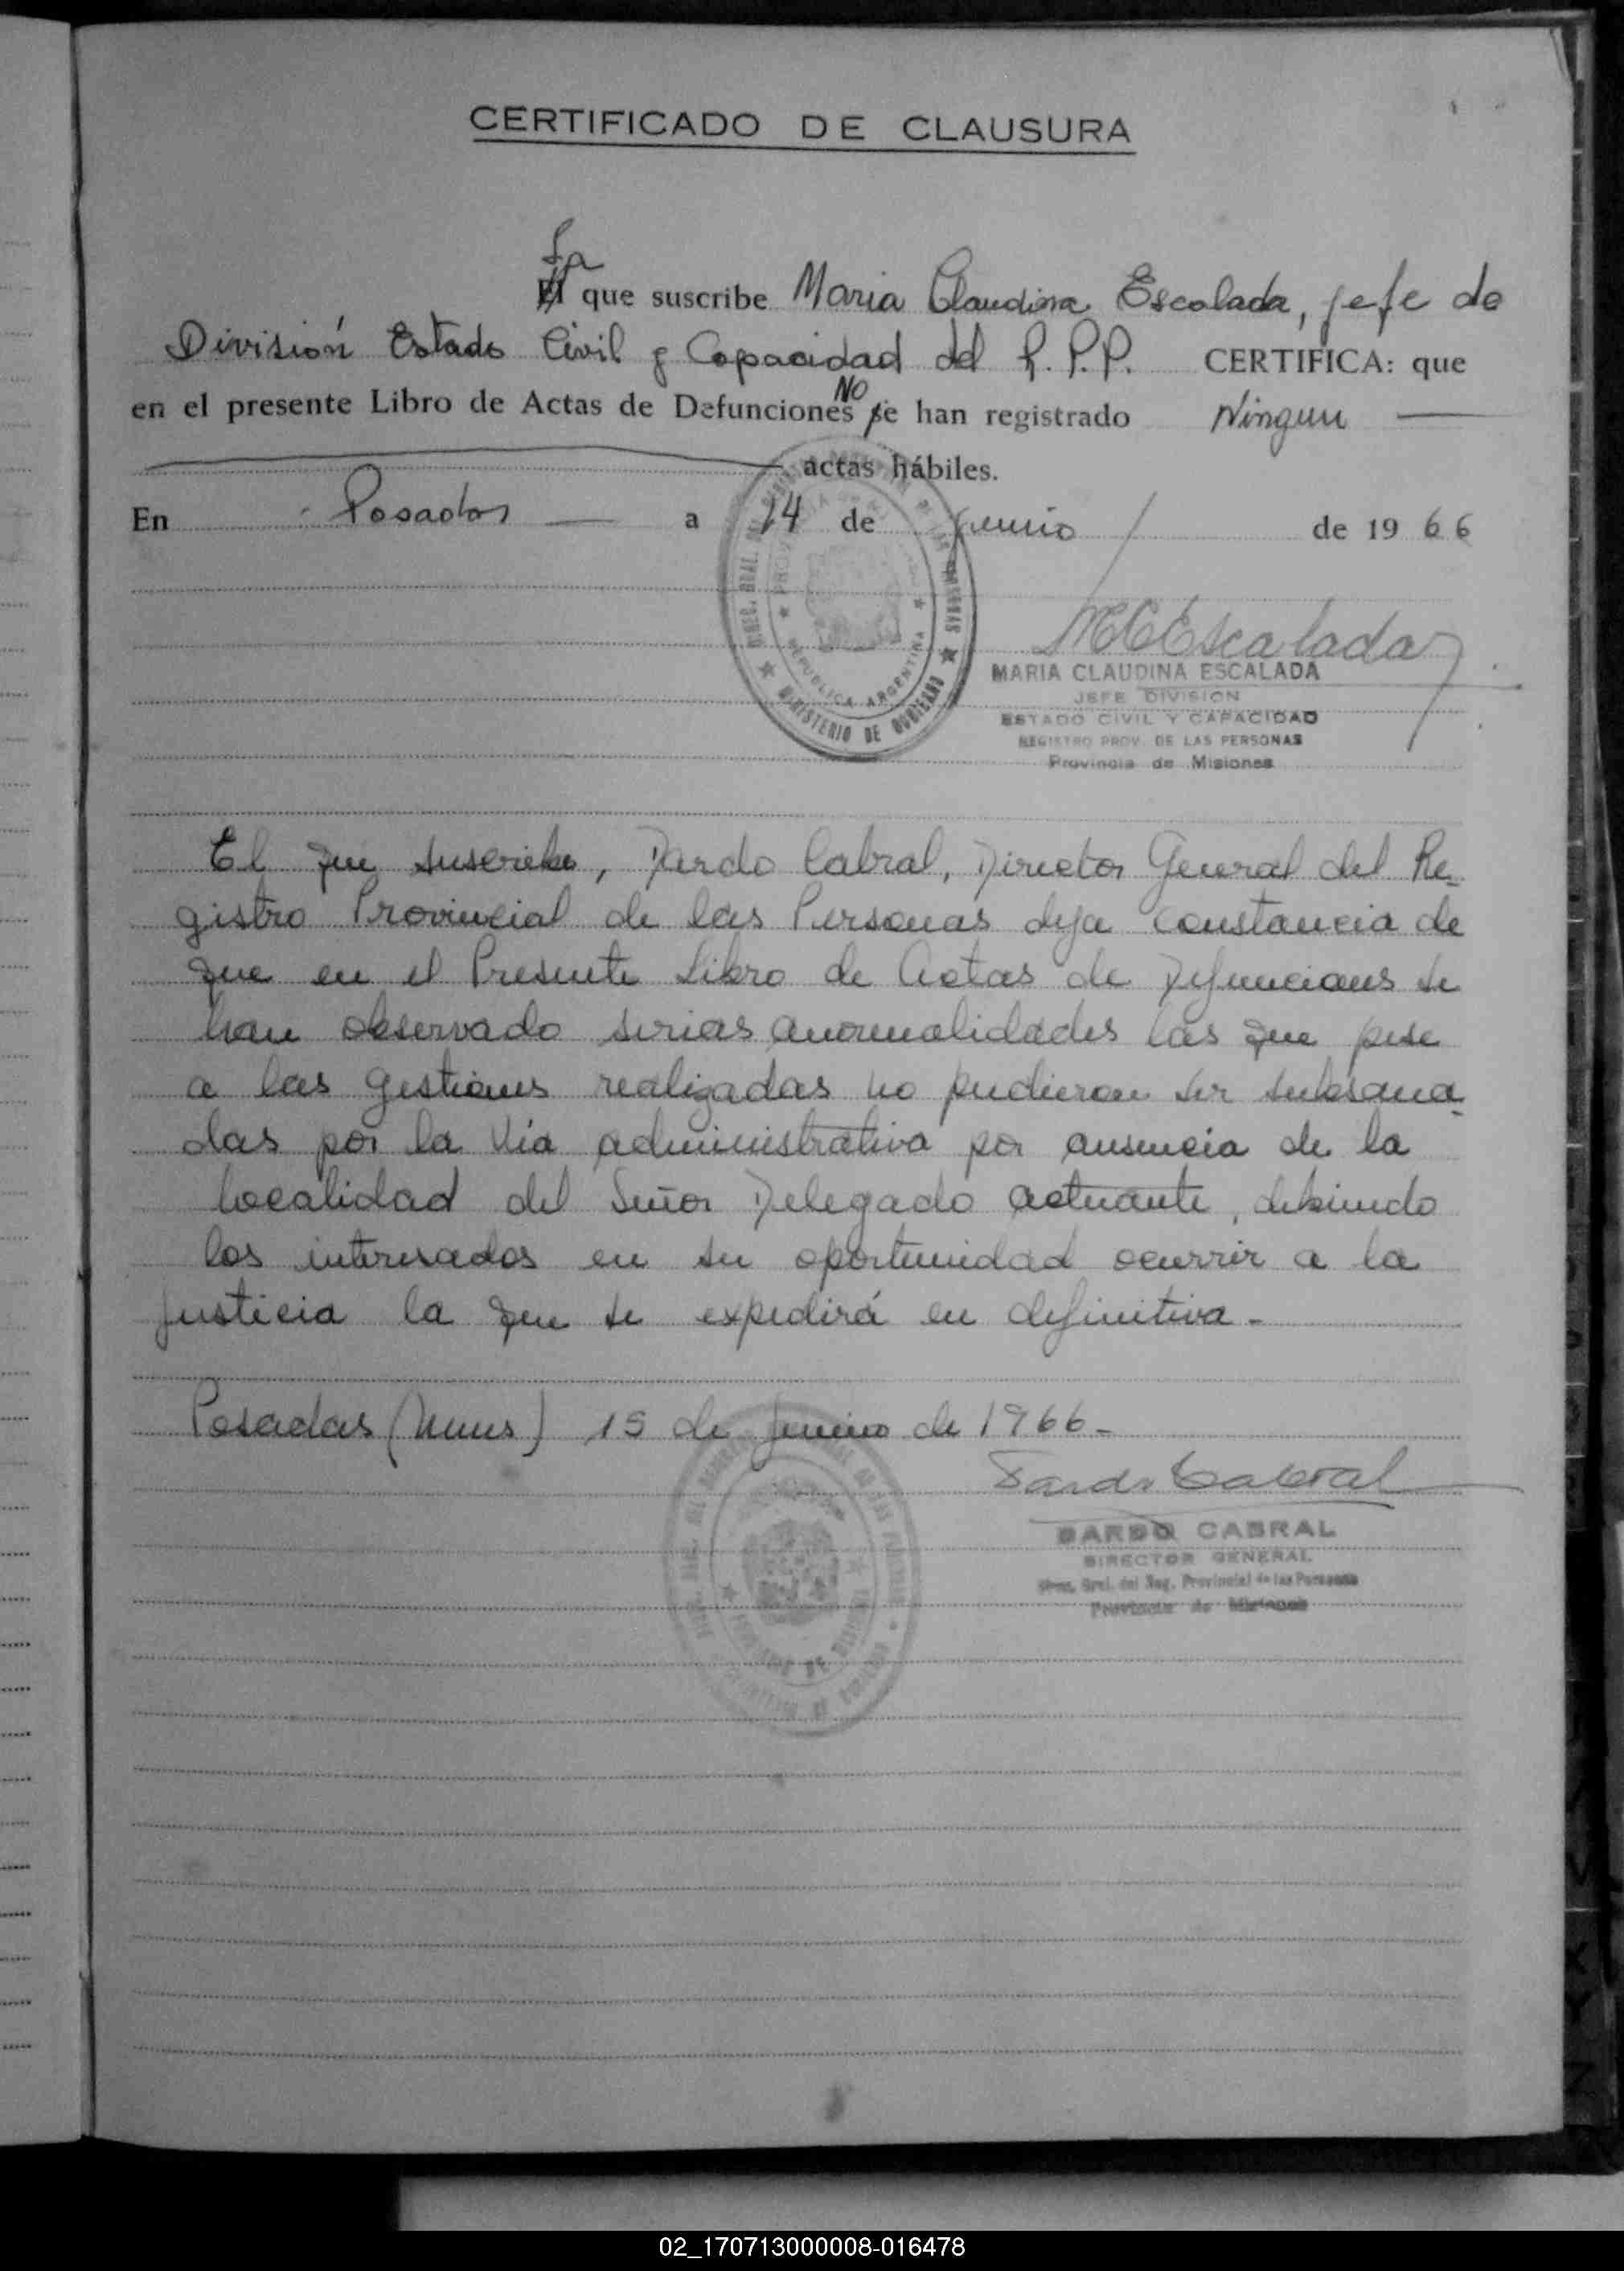 CERTIFICADO DE CLAUSURA
La
El que suscribe Maria Claudina Escalada, jefe de
División Estado Civil y Capacidad del R.P.P. CERTIFICA: que
NO
en el presente Libro de Actas de Defunciones se han registrado Ningun
actas hábiles.
En Posadas a 14 de junio de 1966
MCEscalada
MARIA CLAUDINA ESCALADA
JEFE DIVISION
ESTADO CIVIL Y CAPACIDAD
REGISTRO PROV. DE LAS PERSONAS
Provincia de Misiones
REPUBLICA ARGENTINA
MINISTERIO DE GOBIERNO
El que suscribe, Dardo Cabral, Director General del Re-
gistro Provincial de las Personas deja constancia de
que en el Presente Libro de Actas de Defunciones se
han observado serias anormalidades las que pese
a las gestiones realizadas no pudieron ser subsana-
das por la vía administrativa por ausencia de la
localidad del Señor Delegado actuante, debiendo
los interesados en su oportunidad ocurrir a la
justicia la que se expedirá en definitiva.-
Posadas (Mnes) 15 de junio de 1966-
Dardo Cabral
DARDO CABRAL
DIRECTOR GENERAL
Direc. Gral. del Reg. Provincial de las Personas
Provincia de Misiones
02_170713000008-016478